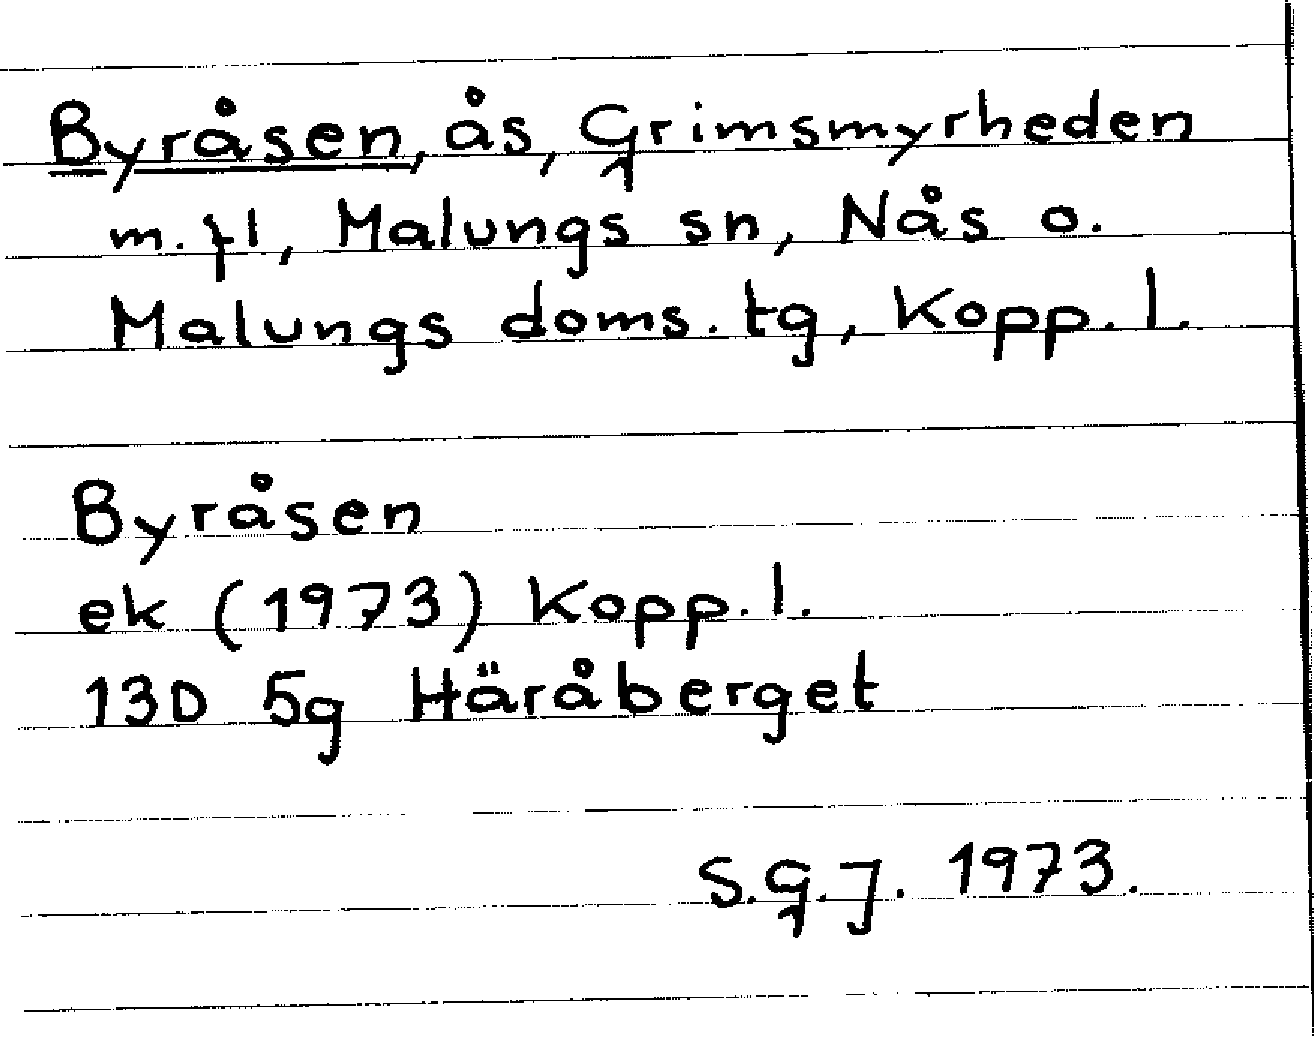 Byråsen, ås, Grimsmyrheden
m. fl, Malungs sn, Nås o.
Malungs doms. tg, Kopp. l.
Byråsen
ek (1973) Kopp. l.
13D 5g Häråberget
S.G.J. 1973.